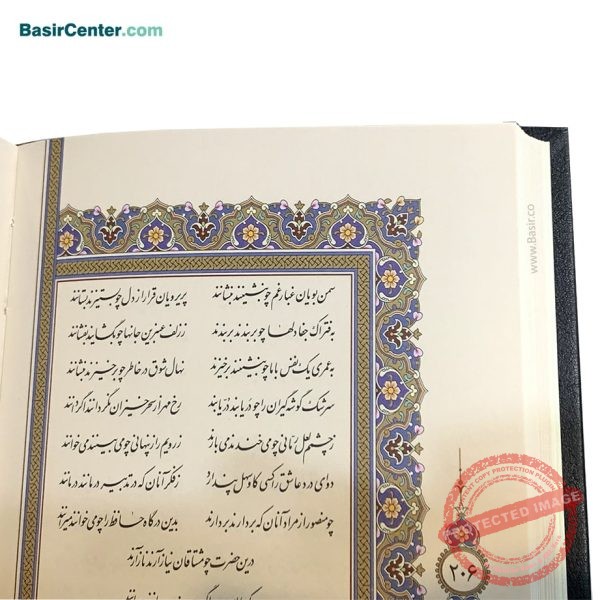 BasirCenter.com
سمن بویان غبار غم چو بنشینند بنشانند پریرویان قرار از دل چو بستیزند بستانند
به فتراک جفا دلها چو بربندند بربندند ز زلف عنبرین جانها چو بگشایند بفشانند
به عمری یک نفس با ما چو بنشینند برخیزند نهال شوق در خاطر چو برخیزند بنشانند
سرشک گوشه گیران را چو دریابند در یابند رخ مهر از سحرخیزان نگردانند اگر دانند
ز چشمم لعل رمانی چو می خندند می بارند ز رویم راز پنهانی چو می بینند می خوانند
دوای درد عاشق را کسی کاو سهل پندارد ز فکر آنان که در تدبیر درمانند در مانند
چو منصور از مراد آنان که بردارند بردارند بدین درگاه حافظ را چو می خوانند می رانند
درین حضرت چو مشتاقان نیاز آرند ناز آرند
www.Basir.co
PROTECTED IMAGE
۲۰۶